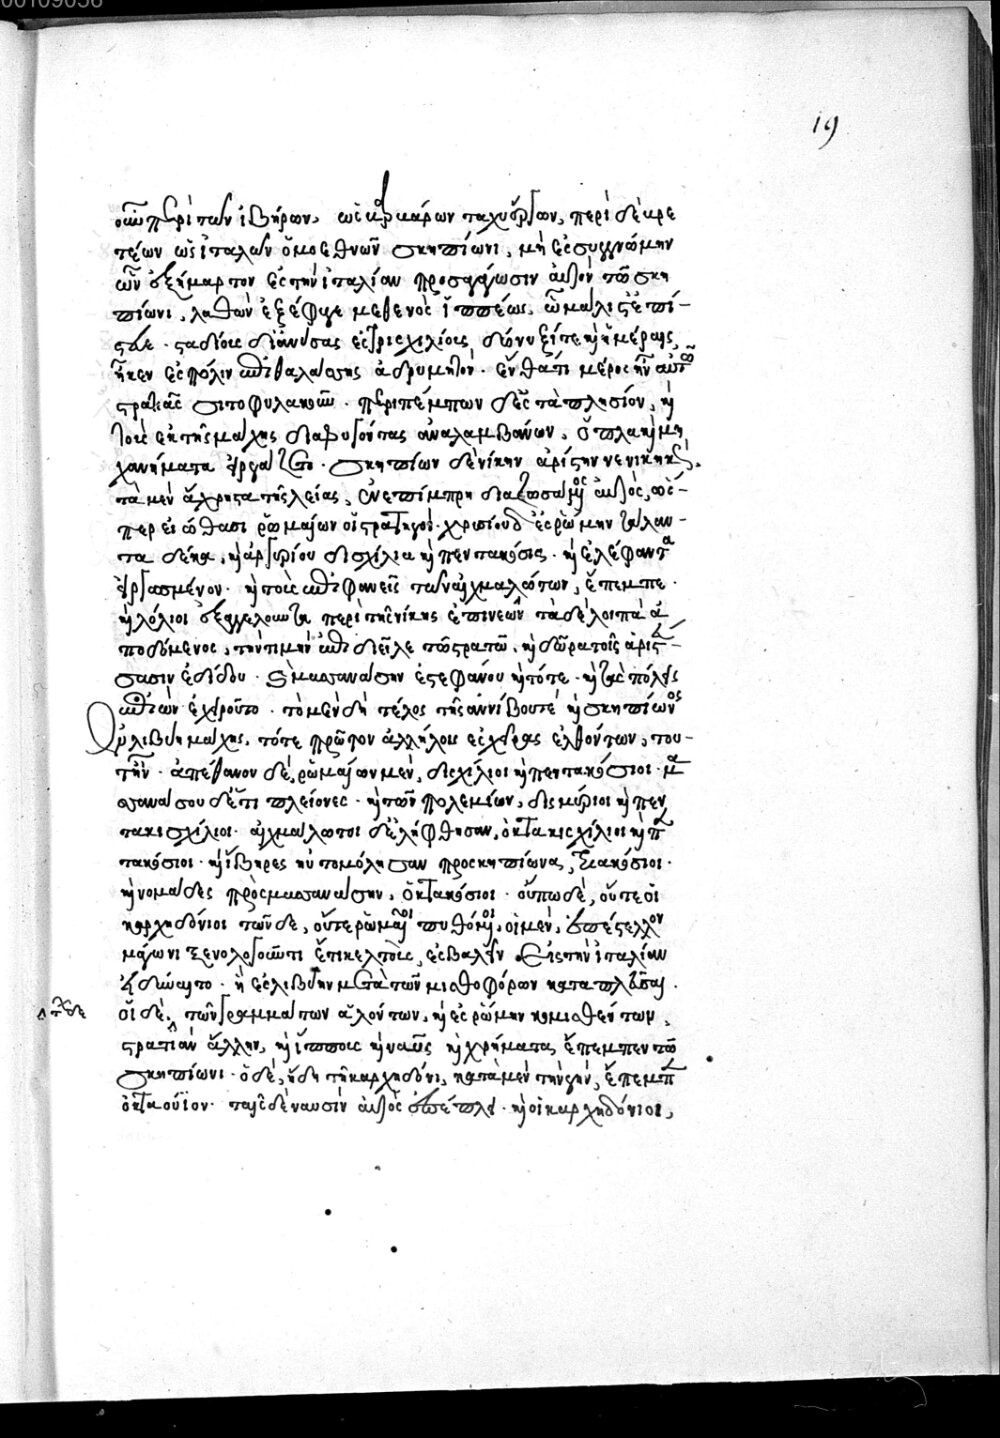 19
οὖν περὶ τῶν ἰβήρων, ὡς νομάδων ταχυέργων, περὶ δὲ βρε
τίων ὡς ἰταλῶν ὁμοεθνῶν σκηπίωνι, μὴ ἐς συγγνώμην
ὧν ἐξήμαρτον ἐς τὴν ἰταλίαν προσαγάγωσιν αὐτὸν τῶ σκη
πίωνι, λαθὼν ἐξέφυγε μεθ' ἑνὸς ἱππέως, ὧ μάλιστ' ἐπί-
στευε. σταδίους διανύσας ἐς τρισχιλίους, δύο νυξί τε καὶ ἡμέραις,
ἧκεν ἐς πόλιν ἐπὶ θαλάσσης ἀδρυμητόν. ἔνθα τι μέρος ἦν αὐτῶ
στρατιᾶς σιτοφυλακοῦν. περιπέμπων δ' ἐς τὰ πλησίον, καὶ
τοὺς ἐκ τῆς μάχης διαφυγόντας ἀναλαμβάνων, ὅπλα καὶ μη
χανήματα εἰργάζετο. σκηπίων δὲ νίκην ἀρίστην νενικηκὼς,
τὰ μὲν ἄχρηστα τῆς λείας, ἐνεπίμπρη διαζωσάμενος αὐτὸς, ὥσ-
περ εἰώθασι ῥωμαίων οἱ στρατηγοί. χρυσίου δ' ἐς ῥώμην τάλαν-
τα δέκα, καὶ ἀργυρίου δισχίλια καὶ πεντακόσια. καὶ ἐλέφαντα
εἰργασμένον. καὶ τοὺς ἐπιφανεῖς τῶν αἰχμαλώτων, ἔπεμπε.
καὶ λόλιον ἐξαγγελοῦντα περὶ τῆς νίκης ἐπὶ νεῶν τὰ δὲ λοιπὰ ἀ
ποδόμενος, τὴν τιμὴν ἐπιδιεῖλε τῶ στρατῶ. καὶ δῶρα τοῖς ἀριστεύ-
σασιν ἐδίδου. καὶ μασσανάσσην ἐστεφάνου καὶ τότε. καὶ τὰς πόλεις
ἐπιὼν ἐχειροῦτο. τὸ μὲν δὴ τέλος τῆς ἀννίβου τε καὶ σκηπίωνος
ἐν λιβύη μάχης, τότε πρῶτον ἀλλήλοις ἐς χεῖρας ἐλθόντων, του-
τ' ἦν. ἀπέθανον δὲ, ῥωμαίων μὲν, δισχίλιοι καὶ πεντακόσιοι. μα
σσανάσσου δ' ἔτι πλείονες. καὶ τῶν πολεμίων, δισμύριοι καὶ πεν
τακισχίλιοι. αἰχμάλωτοι δ' ἐλήφθησαν, ὀκτακισχίλιοι καὶ πεν
τακόσιοι. καὶ ἴβηρες ηὐτομόλησαν πρὸς σκηπίωνα, τριακόσιοι.
καὶ νομάδες πρὸς μασσανάσσην, ὀκτακόσιοι. οὔπω δὲ, οὔτε οἱ
καρχηδόνιοι τῶνδε, οὔτε ῥωμαῖοι πυθόμενοι, οἱ μὲν, ἐπέστελλον
μάγωνι ξενολογοῦντι ἔτι κελτοὺς, ἐσβαλεῖν εἰς τὴν ἰταλίαν
εἰ δύναιτο. ἢ ἐς λιβύην μετὰ τῶν μισθοφόρων καταπλεῦσαι.
οἱ δὲ, τῶνδε τῶν γραμμάτων ἁλόντων, καὶ ἐς ῥώμην κομισθέντων,
στρατιὰν ἄλλην, καὶ ἵππους καὶ ναῦς καὶ χρήματα, ἔπεμπεν τῶ
σκηπίωνι. ὁ δὲ, ἤδη τῆ καρχηδόνι, κατὰ μὲν τὴν γῆν, ἔπεμπε
ὀκτάουϊον. ταῖς δὲ ναυσὶν αὐτὸς ἐπέπλει. καὶ οἱ καρχηδόνιοι,